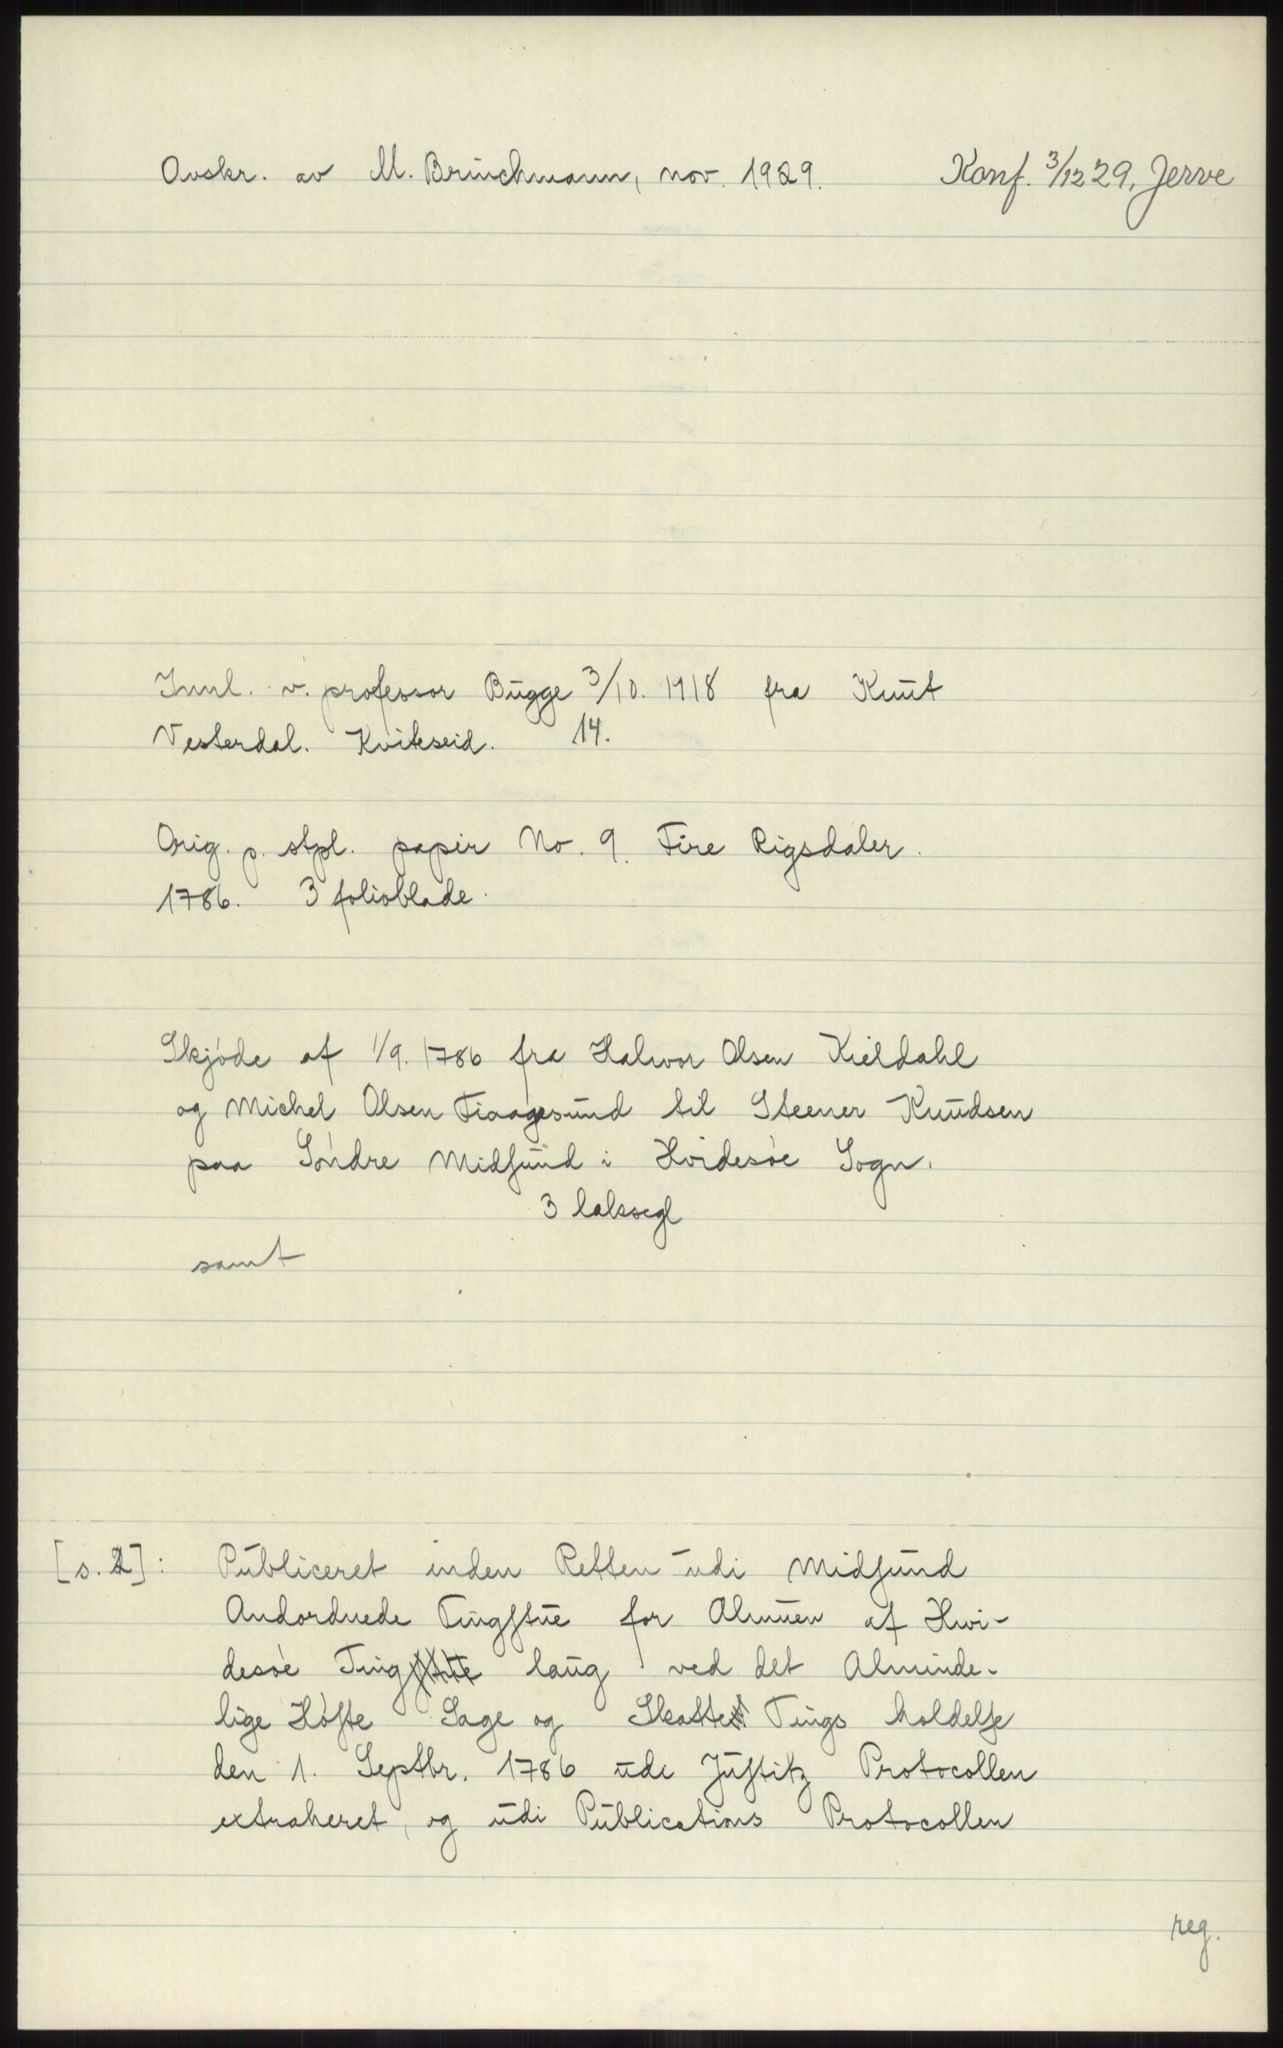 Avskr. av M. Brinchmann, nov. 1929. Konf. 3/12 29, Jerve
Innl. v. professor Bugge 3/10. 1918 fra Knut
Vesterdal. Kviteseid. 14.
Orig. p. stpl. papir No. 9. Fire Rigsdaler.
1786. 3 folioblade.
Skjøde af 1/9. 1786 fra Halvor Olsen Kieldahl
og Michel Olsen Fiaagesund til Steener Knudsen
paa Søndre Midsund i Hvidesøe Sogn.
3 lakksegl
samt
[s. 2]: Publiceret inden Retten udi Midsund
Andordnede Tingstue for Almuen af Hvi-
desøe Ting laug ved det Alminde-
lige Høste Sage og Skatte Tings holdelse
den 1. Septbr. 1786 ude Justitz Protocollen
extraheret, og udi Publications Protocollen
reg.